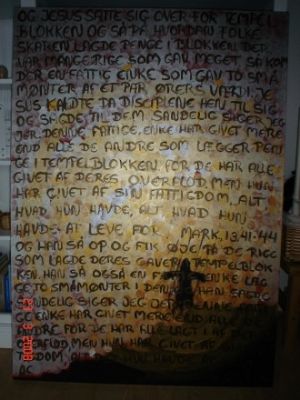 OG JESUS SATTE SIG OVER FOR TEMPEL
BLOKKEN OG SÅ PÅ, HVORDAN FOLKE
SKAREN LAGDE PENGE I BLOKKEN DER
VAR MANGE RIGE SOM GAV MEGET SÅ KOM
DER EN FATTIG ENKE SOM GAV TO SMÅ
MØNTER AF ET PAR ØRERS VÆRDI. JE
SUS KALDTE DA DISCIPLENE HEN TIL SIG
OG SAGDE TIL DEM SANDELIG SIGER JEG
JER: DENNE FATTIGE ENKE HAR GIVET MERE
END ALLE DE ANDRE SOM LÆGGER PEN
GE I TEMPELBLOKKEN FOR DE HAR ALLE
GIVET AF DERES OVERFLOD MEN HUN
HAR GIVET AF SIN FATTIGDOM, ALT
HVAD HUN HAVDE, ALT HVAD HUN
HAVDE AT LEVE FOR MARK. 13.41-44
OG HAN SÅ OP OG FIK ØJE PÅ DE RIGE
SOM LAGDE DERES GAVER I TEMPELBLOK
KEN. HAN SÅ OGSÅ EN FATTIG ENKE LÆG
GE TO SMÅMØNTER I DEN OG HAN SAGDE
SANDELIG SIGER JEG DENNE FATTI
GE ENKE HAR GIVET MERE END ALLE DE
ANDRE FOR DE HAR ALLE LAGT I AF
OVERFLOD MEN HUN HAR GIVET AF
HUN HAVDE